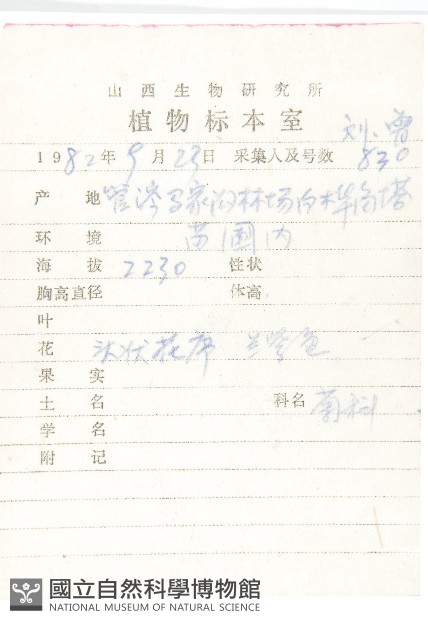 山西生物研究所
植物标本室
刘、曾
1982年9月23日 采集人及号数 830
产地 管涔马家沟林场白桦
环境 苗圃内
海拔 2230 性状
胸高直径 体高
叶
花 头状花序 兰紫色
果实
土名 科名 菊科
学名
附记
國立自然科學博物館
NATIONAL MUSEUM OF NATURAL SCIENCE